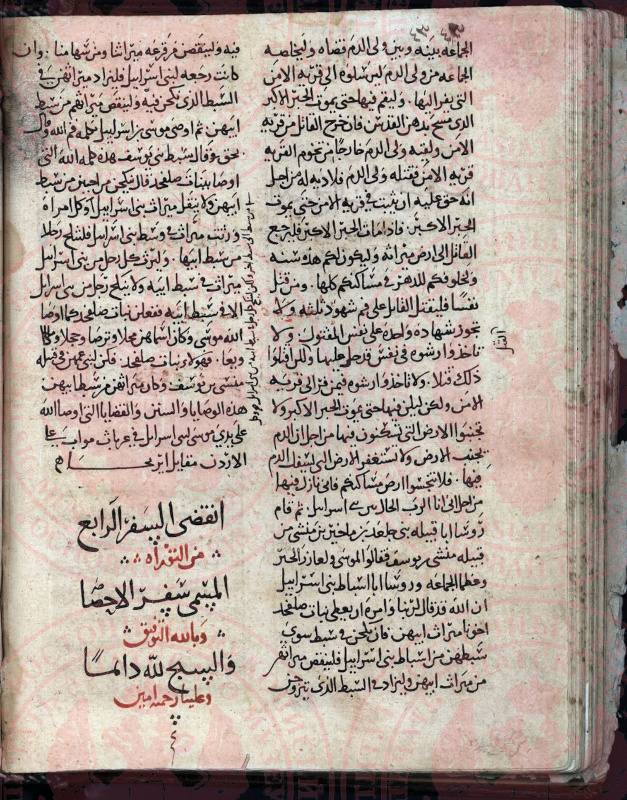 الجماعه بينه وبين ولى الدم قضاه وليخاصه
الجماعه من ولى الدم ليرسلوه الى قريه الامن
التى يفر اليها. وليقم فيها حتى يموت الحبر الاكبر
الذى مسح بدهن القدس فان خرج القاتل من قريه
الامن ولقيه ولى الدم خارجا من تخوم القريه
قريه الامن فقتله ولى الدم فلا ديه له من اجل
انه حق عليه ان يثبت فى قريه الامن حتى يموت
الحبر الاكبر. فاذا مات الحبر الاكبر فليرجع
القاتل الى ارض ميراثه وليكون لكم هذه سنه
ولخلوفكم للدهر فى مساكنكم كلها. ومن قتل
نفسا فليقتل القاتل على فم شهود ثلثه ولا
تجوز شهاده واحده على نفس المقتول. ولا
تاخذوا رشوه فى نفس قد حل عليها
ذلك قتلا. ولا تاخذوا رشوه فيمن فر الى قريه
الامن ولكن ليلبث فيها حتى يموت الحبر الاكبر ولا
تجنبوا الارض التى تسكنون فيها من اجل ان الدم
يجنب الارض ولا تستغفر الارض التى يسفك الدم
فيها. فلا تنجسوا ارض مساكنكم فانى نازل فيها
من اجل انى انا الرب الحال بين بنى اسراييل. ثم قام
روسا ابا قبيله بنى جلعد بن ماخير بن منشى من
قبيله منشى بن يوسف فقالوا لموسى ولعازر الحبر
وعظما الجماعه وروسا ابا اسباط بنى اسراييل
ان الله قد قال لربنا وامره ان يعطى بنات صلفحد
اخونا ميراث ابيهن. فان نكحن فى سبط سوى
سبطهن من اسباط بنى اسراييل فلينقص ميراثهن
من ميراث ابيهن وليزاد فى السبط الذى يتزوجن
القتال
فيه ولينقص من قرعه ميراثنا ومن سهامنا. وان
كانت رجعه لبنى اسراييل فليزاد ميراثهن فى
السبط الذى نكحن فيه ولينقص ميراثهم من سبط
ابيهن ثم اوصى موسى بنى اسراييل من قبل فم الله وقال
بحق وقال سبط بنى يوسف هذه كلمه الله التى
اوصا ببنات صلفحد قال ينكحن من احببن من سبط
ابيهن ولا ينقل ميراث بنى اسراييل وكل امراه
ورثت ميراث فى وسط بنى اسراييل فلتنكح رجلا
من سبط ابيها. وليرث كل رجل من بنى اسراييل
ميراث فى سبط ابيه ولا ينكح رجل من بنى اسراييل
الا فى سبط ابيه ففعلن بنات صلفحد كما اوصا
الله موسى وكان اسماهن محلا وترصا وحجلا وملكا
ونعا. فهولاء بنات صلفحد. فكن لبنى عمهن فى قبيله
منشى بن يوسف وكان ميراثهن مع سبط ابيهن
هذه الوصايا والسنن والقضايا التى اوصا الله
على يدى موسى لبنى اسراييل فى عربات مواب على
الاردن مقابل اريحا
انقضى السفر الرابع
من التوراه
المسمى سفر الاحصا
وبالله التوفيق
والسبح لله دائما
وعلينا رحمته امين